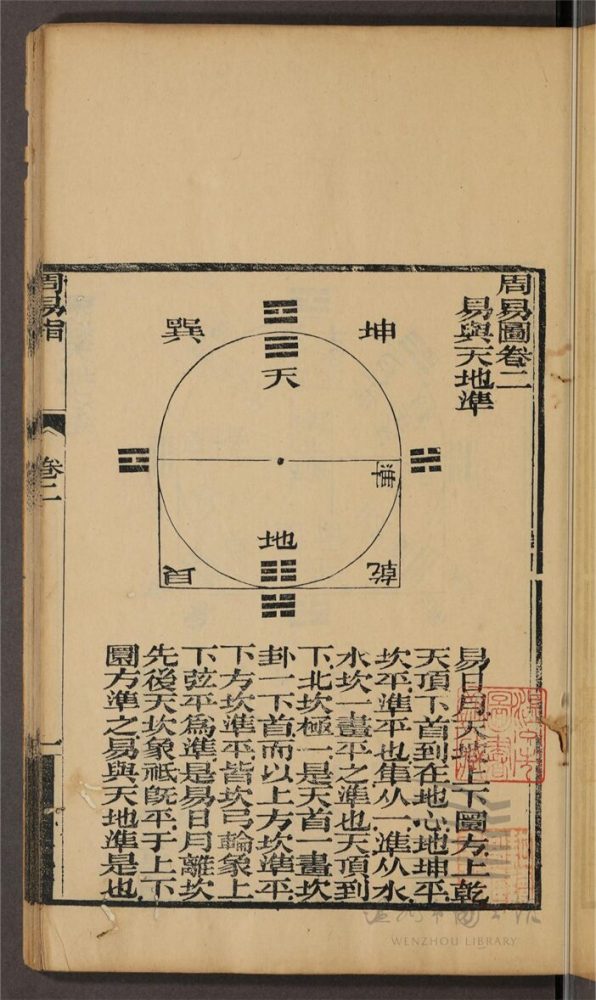 周易圖卷二
易與天地準
坤
巽
天
準
地
乾
艮
易日月天地上下圓方上乾
天頂下首到在地心地坤平
坎平準平也隼从一準从水
水坎一畫平之準也天頂到
下北坎極一是天首一畫坎
卦一下首而以上方坎準平
下方坎準平皆坎弓輪象上
下弦平為準是易日月離坎
先後天坎象祗旣平于上下
圓方準之易與天地準是也
周易指
卷二
一
WENZHOU LIBRARY